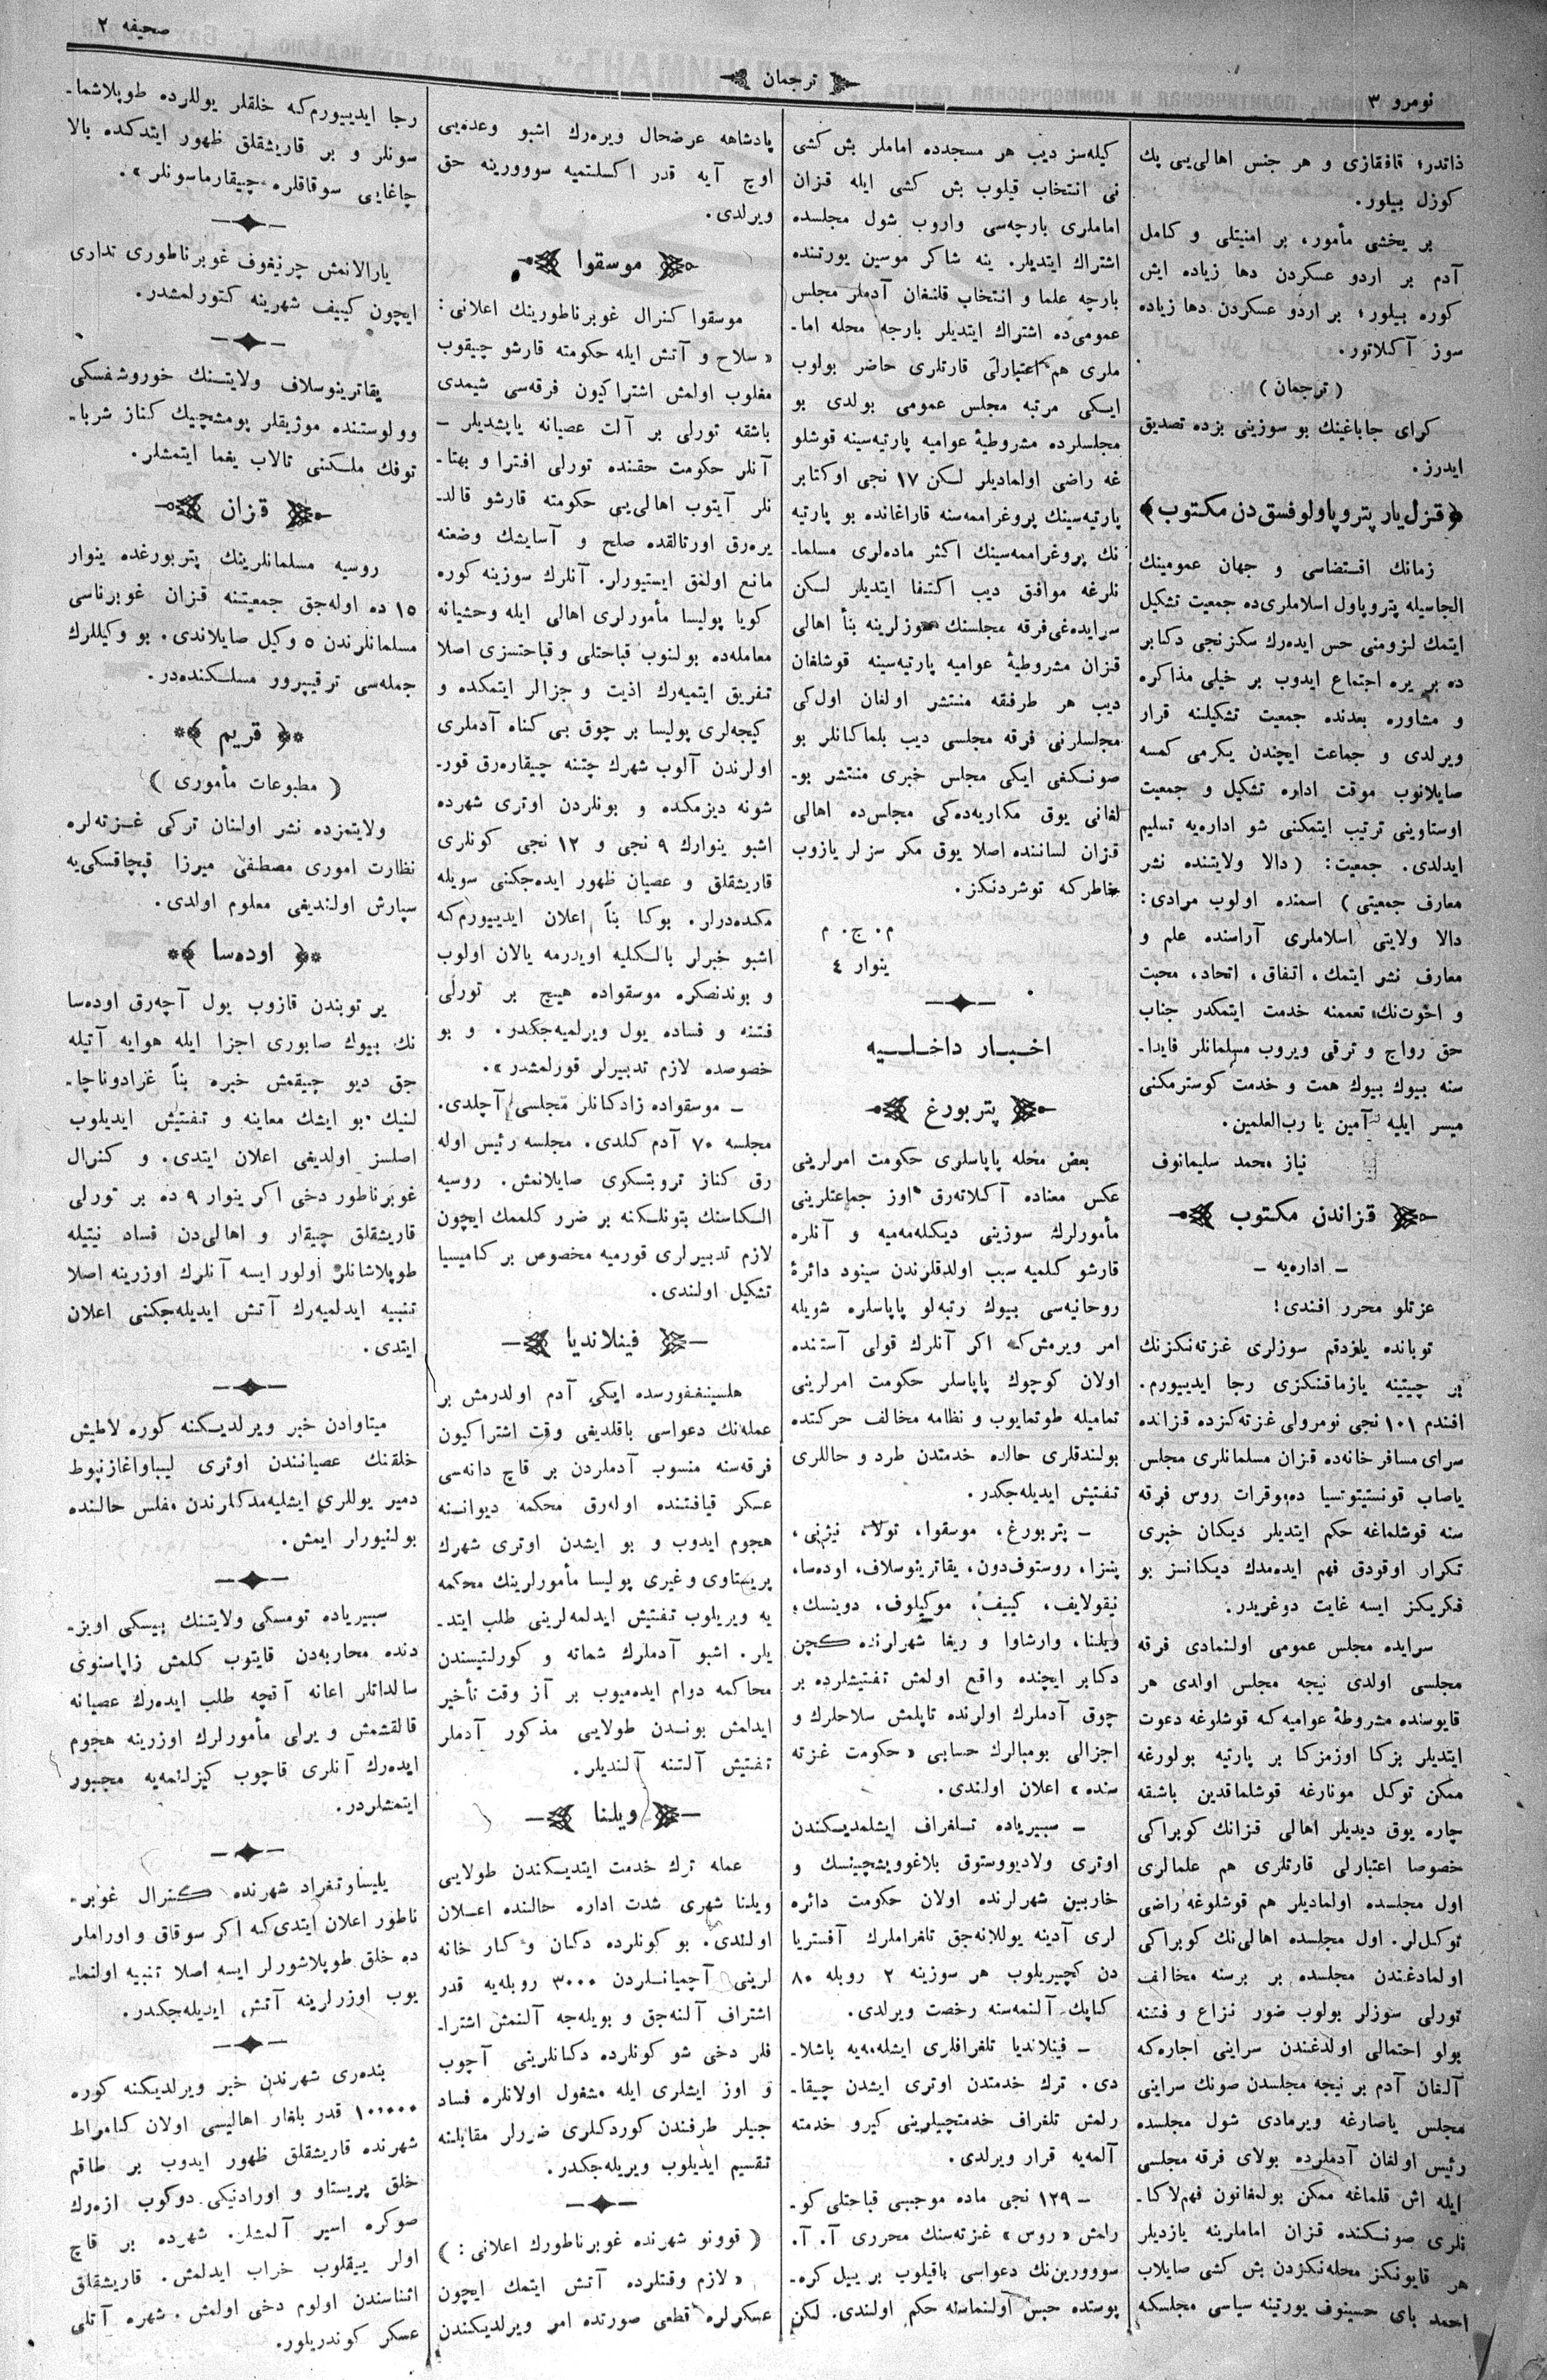 نومرو ۳
ترجمان
صحيفه ۲
ذاتدر؛ قافقازى و هر جنس اهالى‌يى پك
كوزل بيلور.
بر يخشى مأمور، بر امنيتلى و كامل
آدم بر اردو عسكردن دها زياده ايش
كوره بيلور؛ بر اردو عسكردن دها زياده
سوز آكلاتور.
( ترجمان )
كراى جاباغينك بو سوزينى بزده تصديق
ايدرز.
﴿ قزل‌يار پتروپاولوفسق دن مكتوب ﴾
زمانك اقتضاسى و جهان عمومينك
الجاسيله پتروپاول اسلاملرى‌ده جمعيت تشكيل
ايتمك لزومنى حس ايده‌رك سكزنجى دكابر
ده بر يره اجتماع ايدوب بر خيلى مذاكره
و مشاوره بعدنده جمعيت تشكيلنه قرار
ويرلدى و جماعت ايچندن يكرمى كمسه
صايلانوب موقت اداره تشكيل و جمعيت
اوستاوينى ترتيب ايتمكنى شو اداره‌يه تسليم
ايدلدى. جمعيت: (دالا ولايتنده نشر
معارف جمعيتى) اسمنده اولوب مرادى:
دالا ولايتى اسلاملرى آراسنده علم و
معارف نشر ايتمك، اتفاق، اتحاد، محبت
و اخوت‌نك تعممنه خدمت ايتمكدر جناب
حق رواج و ترقى ويروب مسلمانلر فايدا-
سنه بيوك بيوك همت و خدمت كوسترمكنى
ميسر ايليه آمين يا رب‌العلمين.
نياز محمد سليمانوف
قزاندن مكتوب
– اداره‌يه –
عزتلو محرر افندى!
توبانده يازدقم سوزلرى غزته‌نكزنك
بر چيتينه يازماقنكزى رجا ايدييورم.
افندم ۱۰۱ نجى نومرولى غزته‌كزده قزانده
سراى مسافر خانه‌ده قزان مسلمانلرى مجلس
ياصاب قونستيتوتسيا ده‌موقرات روس فرقه
سنه قوشلماغه حكم ايتديلر ديكان خبرى
تكرار اوقودق فهم ايده‌مدك ديكانسز بو
فكريكز ايسه غايت دوغريدر.
سرايده مجلس عمومى اولنمادى فرقه
مجلسى اولدى نيجه مجلس اولدى هر
قايوسنده مشروطۀ عواميه‌كه قوشلوغه دعوت
ايتديلر بزكا اوزمزكا بر پارتيه بولورغه
ممكن توكل مونارغه قوشلماقدين باشقه
چاره يوق ديديلر اهالى قزانك كوبراكى
خصوصا اعتبارلى قارتلرى هم علمالرى
اول مجلسده اولماديلر هم قوشلوغه راضى
توكل‌لر. اول مجلسده اهالى‌نك كوبراكى
اولمادغندن مجلسده بر برسنه مخالف
تورلى سوزلر بولوب ضور نزاع و فتنه
بولو احتمالى اولدغندن سراينى اجاره‌كه
آلغان آدم بر نيجه مجلسدن صونك سراينى
مجلس ياصارغه ويرمادى شول مجلسده
رئيس اولغان آدملرده بولاى فرقه مجلسى
ايله اش قلماغه ممكن بولمغانون فهم‌لاكا-
نلرى صونكنده قزان اماملرينه يازديلر
هر قايونكز محله‌نكزدن بش كشى صايلاب
احمد باى حسينوف يورتينه سياسى مجلسكه
كيله‌سز ديب هر مسجدده اماملر بش كشى
نى انتخاب قيلوب بش كشى ايله قزان
اماملرى بارچه‌سى واروب شول مجلسده
اشتراك ايتديلر. ينه شاكر موسين يورتنده
بارچه علما و انتخاب قلنغان آدملر مجلس
عمومى‌ده اشتراك ايتديلر بارجه محله اما-
ملرى هم اعتبارلى قارتلرى حاضر بولوب
ايكى مرتبه مجلس عمومى بولدى بو
مجلسلرده مشروطيۀ عواميه پارتيه‌سينه قوشلو
غه راضى اولماديلر لكن ۱۷ نجى اوكتابر
پارتيه‌سينك پروغراممه‌سنه قاراغانده بو پارتيه
نك پروغراممه‌سينك اكثر ماده‌لرى مسلما-
نلرغه موافق ديب اكتفا ايتديلر لكن
سرايده‌غى فرقه مجلسنك سوزلرينه بنأ اهالى
قزان مشروطيۀ عواميه پارتيه‌سينه قوشلغان
ديب هر طرفقه منتشر اولغان اول‌كى
مجلسلرنى فرقه مجلسى ديب بلماكانلر بو
صونكغى ايكى مجلس خبرى منتشر بو-
لغانى يوق مكاريه‌ده‌كى مجلس‌ده اهالى
قزان لساننده اصلا يوق مكر سزلر يازوب
خاطركه توشردنكز.
م. ج. م
ينوار ٤
اخبار داخليه
پتربورغ
بعض محله پاپاسلرى حكومت امرلرينى
عكس معناده آكلاته‌رق اوز جماعتلرينى
مأمورلرك سوزينى ديكله‌مه‌ميه و آنلره
قارشو كلميه سبب اولدقلرندن سينود دائرۀ
روحانيه‌سى بيوك رتبه‌لو پاپاسلره شويله
امر ويرمش‌كه اكر آنلرك قولى آستنده
اولان كوچوك پاپاسلر حكومت امرلرينى
تماميله طوتمايوب و نظامه مخالف حركتده
بولندقلرى حالده خدمتدن طرد و حاللرى
تفتيش ايديله‌جكدر.
– پتربورغ، موسقوا، تولا، نيژنى،
پنزا، روستوف‌دون، يقاترينوسلاف، اوده‌سا،
نيقولايف، كييف، موكيلوف، دوينسك،
ويلنا، وارشاوا و ريغا شهرلرنده كچن
دكابر ايچنده واقع اولمش تفتيشلرده بر
چوق آدملرك اولرنده تاپلمش سلاحلرك و
اجزالى بومبالرك حسابى «حكومت غزته
سنده» اعلان اولندى.
– سيبيرياده تلغراف ايشلمديكندن
اوترى ولاديووستوق بلاغوويشچينسك و
خاربين شهرلرنده اولان حكومت دائره
لرى آدينه يوللانه‌جق تلغراملرك آفستريا
دن كچيريلوب هر سوزينه ۲ روبله ۸۰
كاپك آلنمه‌سنه رخصت ويرلدى.
– فينلانديا تلغرافلرى ايشله‌مه‌يه باشلا-
دى. ترك خدمتدن اوترى ايشدن چيقا-
رلمش تلغراف خدمتچيلرينى كيرو خدمته
آلمه‌يه قرار ويرلدى.
– ۱۲۹ نجى ماده موجبى قباحتلى كو-
رلمش «روس» غزته‌سنك محررى آ. آ.
سووورين‌نك دعواسى باقيلوب بر ييل كره-
پوستده حبس اولنماسنه حكم اولندى. لكن
پادشاهه عرضحال ويره‌رك اشبو وعده‌يى
اوچ آيه قدر اكسلتميه سووورينه حق
ويرلدى.
موسقوا
موسقوا كنرال غوبرناطورينك اعلانى:
«سلاح و آتش ايله حكومته قارشو چيقوب
مغلوب اولمش اشتراكيون فرقه‌سى شيمدى
باشقه تورلى بر آلت عصيانه ياپشديلر –
آنلر حكومت حقنده تورلى افترا و بهتا-
نلر آيتوب اهالى‌يى حكومته قارشو قالد-
يره‌رق اورتالقده صلح و آسايشك وضعنه
مانع اولمق ايستيورلر. آنلرك سوزينه كوره
كويا پوليسا مأمورلرى اهالى ايله وحشيانه
معامله‌ده بولنوب قباحتلى وقباحتسزى اصلا
تفريق ايتميه‌رك اذيت و جزالر ايتمكده و
كيجه‌لرى پوليسا بر چوق بى كناه آدملرى
اولرندن آلوب شهرك چتنه چيقاره‌رق قور-
شونه ديزمكده و بونلردن اوترى شهرده
اشبو ينوارك ۹ نجى و ۱۲ نجى كونلرى
قاريشقلق و عصيان ظهور ايده‌جكنى سويله
مكده‌درلر. بوكا بنأ اعلان ايدييورم‌كه
اشبو خبرلر بالكليه اويدرمه يالان اولوب
و بوندنصكره موسقواده هيچ بر تورلى
فتنه و فساده يول ويرلميه‌جكدر. و بو
خصوصده لازم تدبيرلر قورلمشدر».
– موسقواده زادكانلر مجلسى آچلدى.
مجلسه ۷۰ آدم كلدى. مجلسه رئيس اوله
رق كناز تروبتسكوى صايلانمش. روسيه
الكاسنك بتونلكنه بر ضرر كلممك ايچون
لازم تدبيرلرى قورميه مخصوص بر كاميسيا
تشكيل اولندى.
فينلانديا
هلسينغفورسده ايكى آدم اولدرمش بر
عمله‌نك دعواسى باقلديغى وقت اشتراكيون
فرقه‌سنه منسوب آدملردن بر قاچ دانه‌سى
عسكر قيافتنده اوله‌رق محكمه ديوانسنه
هجوم ايدوب و بو ايشدن اوترى شهرك
پريستاوى وغيرى پوليسا مأمورلرينك محكمه
يه ويريلوب تفتيش ايدلمه‌لرينى طلب ايتد-
يلر. اشبو آدملرك شماته و كورلتيسندن
محاكمه دوام ايده‌ميوب بر آز وقت تأخير
ايدلمش بوندن طولايى مذكور آدملر
تفتيش آلتنه آلنديلر.
ويلنا
عمله ترك خدمت ايتديكندن طولايى
ويلنا شهرى شدت اداره حالنده اعلان
اولندى. بو كونلرده دكان و كار خانه
لرينى آچميانلردن ۳۰۰۰ روبله‌يه قدر
اشتراف آلنه‌جق و بويله‌جه آلنمش اشترا-
فلر دخى شو كونلرده دكانلرينى آچوب
و اوز ايشلرى ايله مشغول اولانلره فساد
جيلر طرفندن كوردكلرى ضررلر مقابلنه
تقسيم ايديلوب ويريله‌جكدر.
( قوونو شهرنده غوبرناطورك اعلانى: )
«لازم وقتلرده آتش ايتمك ايچون
عسكرلره قطعى صورتده امر ويرلديكندن
رجا ايدييورم‌كه خلقلر يوللرده طوپلاشما-
سونلر و بر قاريشقلق ظهور ايتدكده بالا
چاغايى سوقاقلره چيقارماسونلر».
يارالانمش چرنيغوف غوبرناطورى تدارى
ايچون كييف شهرينه كتورلمشدر.
يقاترينوسلاف ولايتنك خوروشفسكى
وولوستنده موژيقلر پومشچيك كناز شربا-
توفك ملكنى تالاب يغما ايتمشلر.
قزان
روسيه مسلمانلرينك پتربورغده ينوار
۱۵ ده اوله‌جق جمعيتنه قزان غوبرناسى
مسلمانلرندن ۵ وكيل صايلاندى. بو وكيللرك
جمله‌سى ترقيپرور مسلكنده‌در.
قريم
( مطبوعات مأمورى )
ولايتمزده نشر اولنان تركى غزته‌لره
نظارت امورى مصطفى ميرزا قپچاقسكى‌يه
سپارش اولنديغى معلوم اولدى.
اوده‌سا
ير توبندن قازوب يول آچه‌رق اوده‌سا
نك بيوك صابورى اجزا ايله هوايه آتيله
جق ديو چيقمش خبره بنأ غرادوناچا-
لنيك بو ايشك معاينه و تفتيش ايديلوب
اصلسز اولديغى اعلان ايتدى. و كنرال
غوبرناطور دخى اكر ينوار ۹ ده بر تورلى
قاريشقلق چيقار و اهالى‌دن فساد نيتيله
طوپلاشانلر اولور ايسه آنلرك اوزرينه اصلا
تنبيه ايدلميه‌رك آتش ايديله‌جكنى اعلان
ايتدى.
ميتاوادن خبر ويرلديكنه كوره لاطيش
خلقنك عصيانندن اوترى ليباواغازنپوط
دمير يوللرى ايشليه‌مدكلرندن مفلس حالنده
بولنيورلر ايمش.
سيبيرياده تومسكى ولايتنك بيسكى اويز-
دنده محاربه‌دن قايتوب كلمش زاپاسنوى
سالداتلر اعانه آقچه طلب ايده‌رك عصيانه
قالقشمش و يرلى مأمورلرك اوزرينه هجوم
ايده‌رك آنلرى قاچوب كيزلنمه‌يه مجبور
ايتمشلردر.
يليساوتغراد شهرنده كنرال غوبر-
ناطور اعلان ايتدى‌كه اكر سوقاق و اوراملر
ده خلق طوپلاشورلر ايسه اصلا تنبيه اولنما-
يوب اوزرلرينه آتش ايديله‌جكدر.
بنده‌رى شهرندن خبر ويرلديكنه كوره
۱۰،۰۰۰ قدر بلغار اهاليسى اولان كامراط
شهرنده قاريشقلق ظهور ايدوب بر طاقم
خلق پريستاو و اورادنيكى دوكوب ازه‌رك
صوكره اسير آلمشلر. شهرده بر قاچ
اولر ييقلوب خراب ايدلمش. قاريشقلق
اثناسندن اولوم دخى اولمش. شهره آتلى
عسكر كوندريلور.